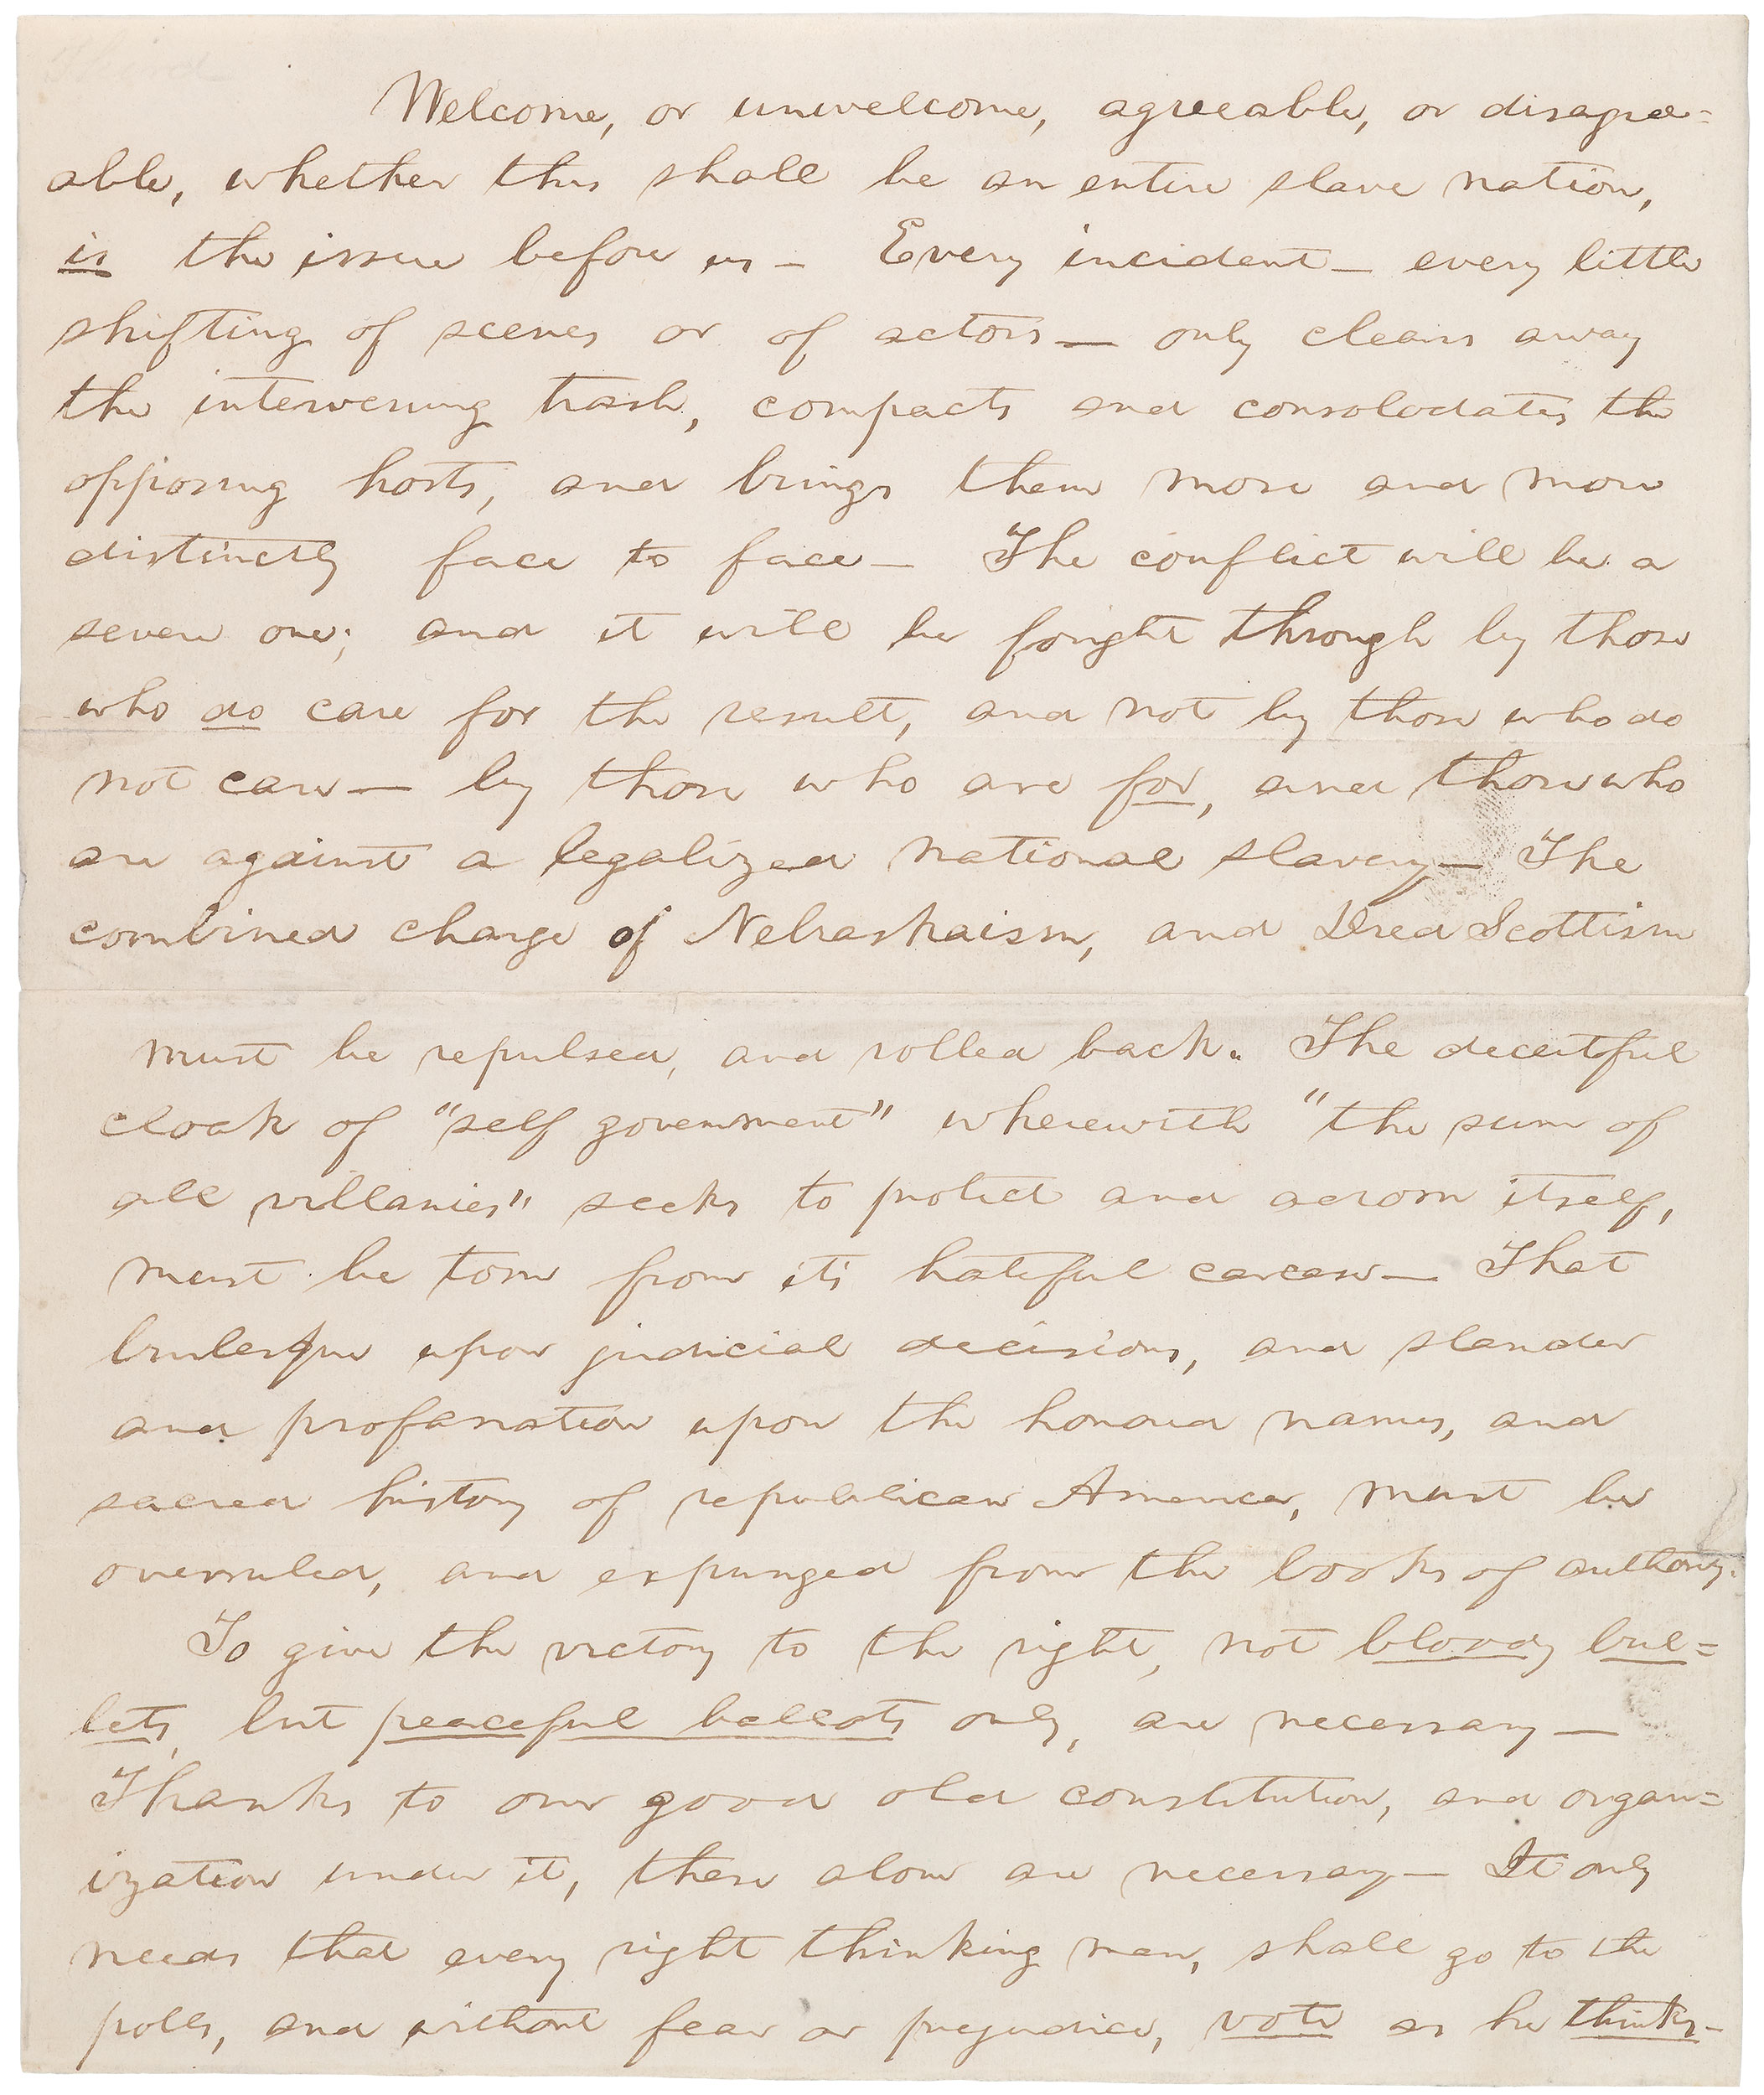 Welcome, or unwelcome, agreeable, or disagree=
able, whether this shall be an entire slave nation,
is the issue before us — Every incident — every little
shifting of scenes or of actors — only clears away
the intervening trash, compacts and consolodates the
opposing hosts, and brings them more and more
distinctly face to face — The conflict will be a
severe one; and it will be fought through by those
who do care for the result, and not by those who do
not care — by those who are for, and those who
are against a legalized national slavery — The
combined charge of Nebraskaism, and Dred Scottism
must be repulsed, and rolled back. The deceitful
cloak of "self government" wherewith "the sum of
all villanies" seeks to protect and adorn itself,
must be torn from it's hateful carcass — That
burlesque upon judicial decisions, and slander
and profanation upon the honored names, and
sacred history of republican America, must be
overruled, and expunged from the books of authority.
To give the victory to the right, not bloody bul=
lets, but peaceful ballots only, are necessary —
Thanks to our good old constitution, and organ=
ization under it, these alone are necessary — It only
needs that every right thinking man, shall go to the
polls, and without fear or prejudice, vote as he thinks —